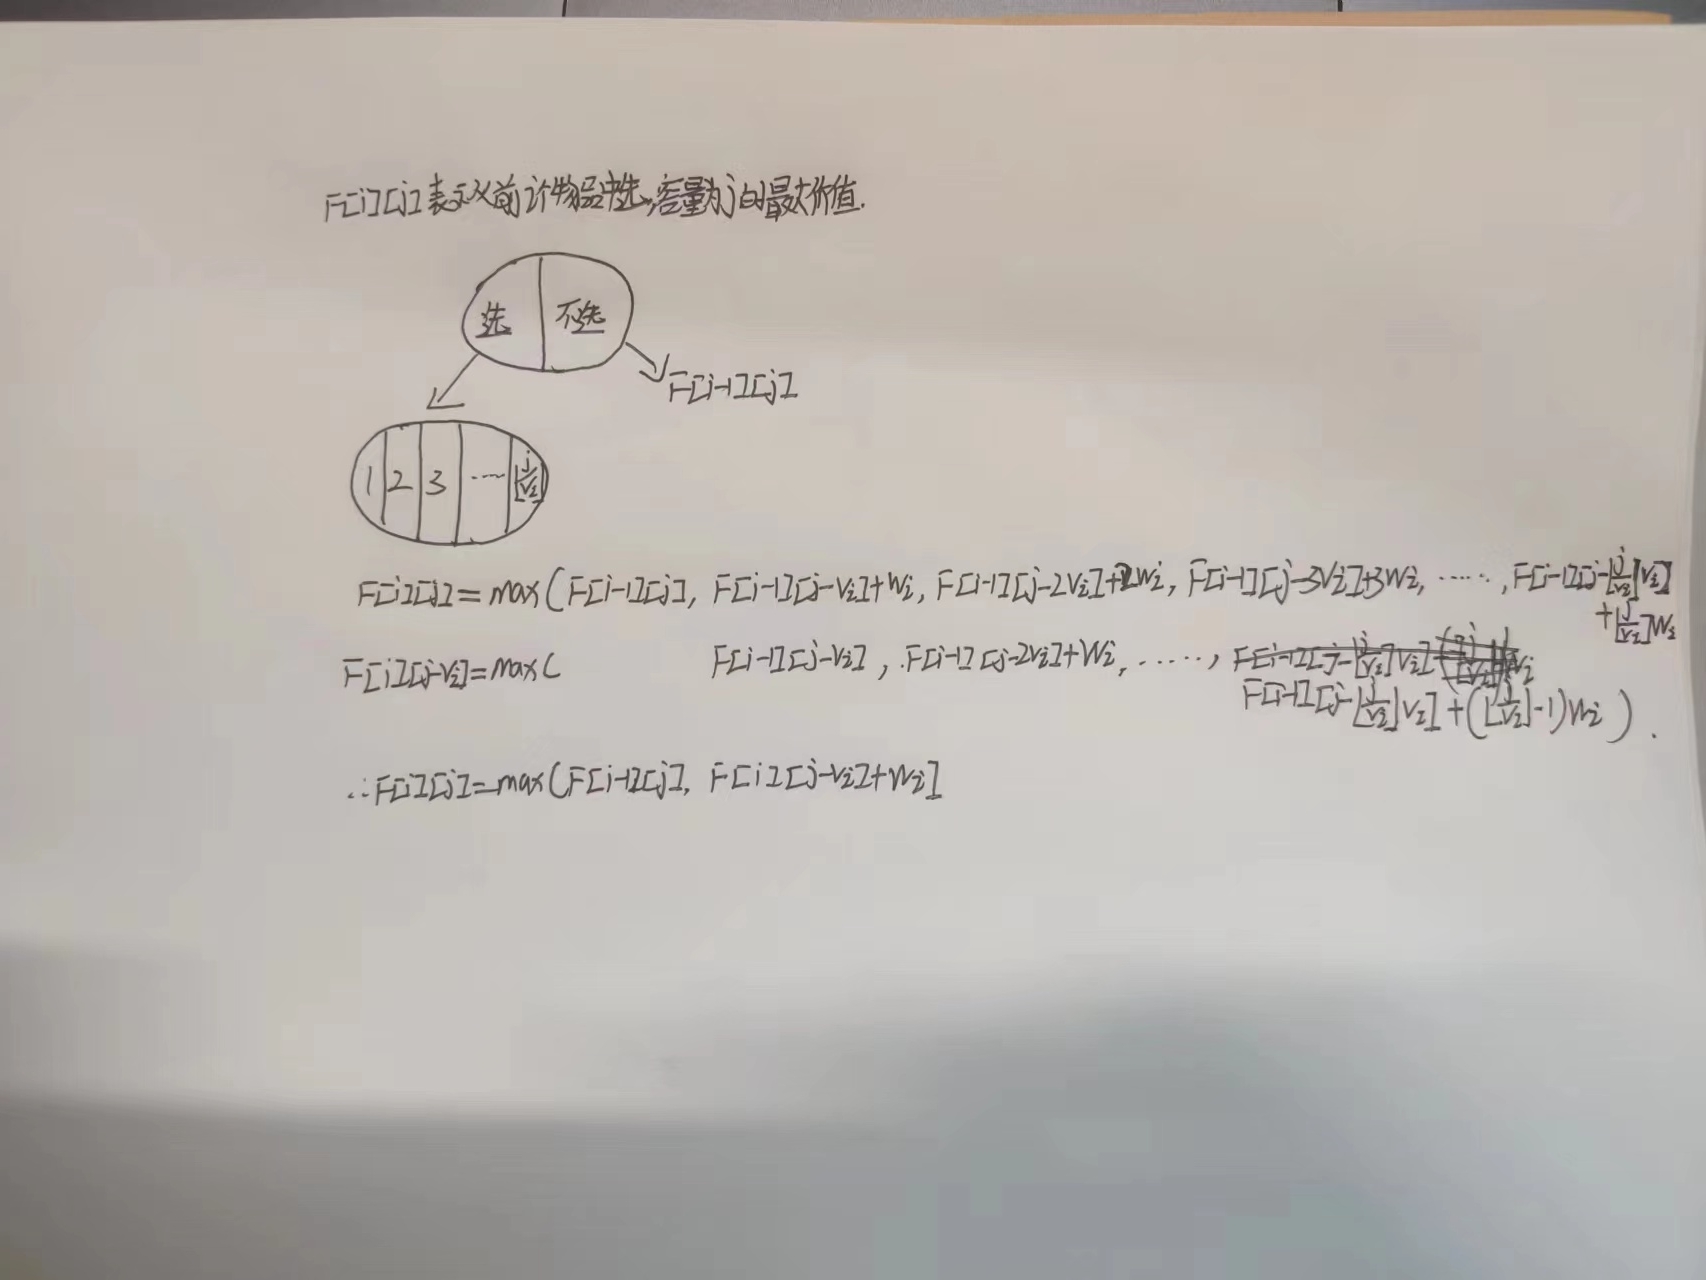 F[i][j]表示从前i件物品中选,容量为j的最大价值.
选 不选
F[i-1][j]
1 2 3 ...... ⌊j/vi⌋
F[i][j]=max(F[i-1][j], F[i-1][j-vi]+wi, F[i-1][j-2vi]+2wi, F[i-1][j-3vi]+3wi, ......, F[i-1][j-⌊j/vi⌋vi]
+⌊j/vi⌋wi
F[i][j-vi]=max( F[i-1][j-vi], F[i-1][j-2vi]+wi, ......,
F[i-1][j-⌊j/vi⌋vi]+(⌊j/vi⌋-1)wi).
∴F[i][j]=max(F[i-1][j], F[i][j-vi]+wi]